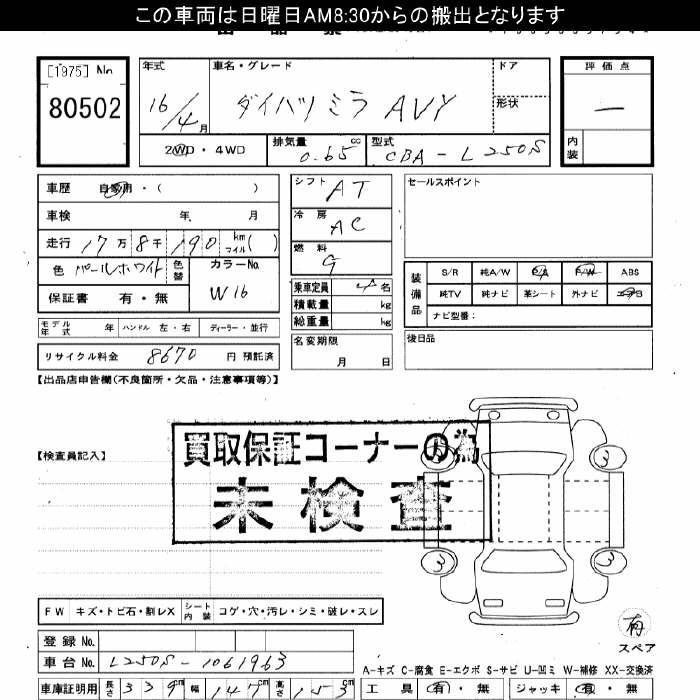 この車両は日曜日AM8:30からの搬出となります
[1975] No
80502
年式
16/4月
車名・グレード
ダイハツ ミラ AVY
ドア
形状
評価点
―
内装
2WD・4WD
排気量
0.65 cc
型式
CBA-L250S
車歴 自家用・( )
車検 年 月
走行 17万8千190 km マイル( )
色 パールホワイト
色替
カラーNo.
W16
保証書 有・無
シフト AT
冷房 AC
燃料 G
乗車定員 4名
積載量 kg
総重量 kg
セールスポイント
装備品
S/R 純A/W P/S P/W ABS
純TV 純ナビ 革シート 外ナビ
ナビ型番:
モデル年式 年 ハンドル 左・右 ディーラー・並行
名変期限
月 日
後日品
リサイクル料金 8670 円 預託済
【出品店申告欄(不良箇所・欠品・注意事項等)】
【検査員記入】
買取保証コーナーの為
未検査
3
3
3
FW キズ・トビ石・割レX
シート内装 コゲ・穴・汚レ・シミ・破レ・スレ
有
スペア
登録 No.
車台 No. L250S-1061963
A-キズ C-腐食 E-エクボ S-サビ U-凹ミ W-補修 XX-交換済
車庫証明用 長さ 339cm 幅 147cm 高さ 153cm
工具 有・無 ジャッキ 有・無